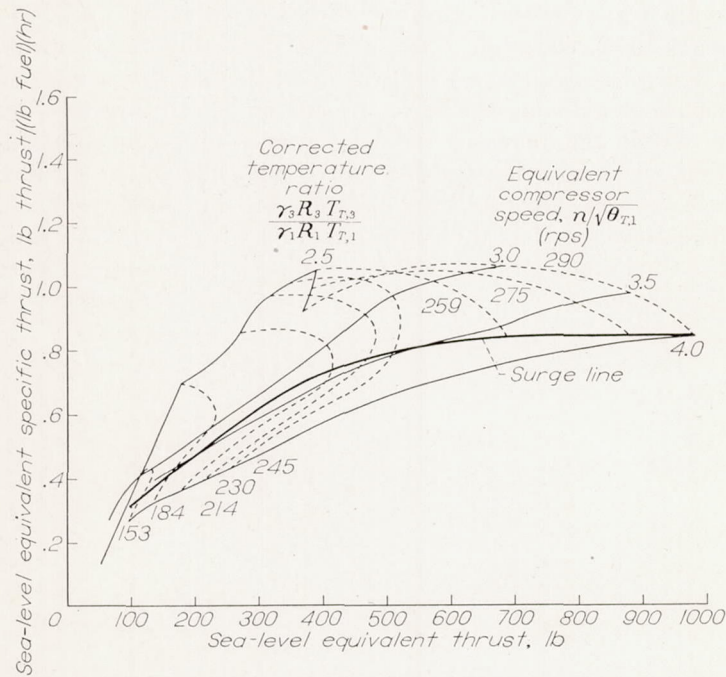 Sea-level equivalent specific thrust, lb thrust/(lb fuel)(hr)
1.6
1.4
1.2
1.0
.8
.6
.4
.2
0
Corrected
temperature
ratio
γ₃R₃T_T,3
γ₁R₁T_T,1
2.5
Equivalent
compressor
speed, n/√θ_T,1
(rps)
3.0
290
3.5
259
275
4.0
Surge line
245
230
214
184
153
100
200
300
400
500
600
700
800
900
1000
Sea-level equivalent thrust, lb